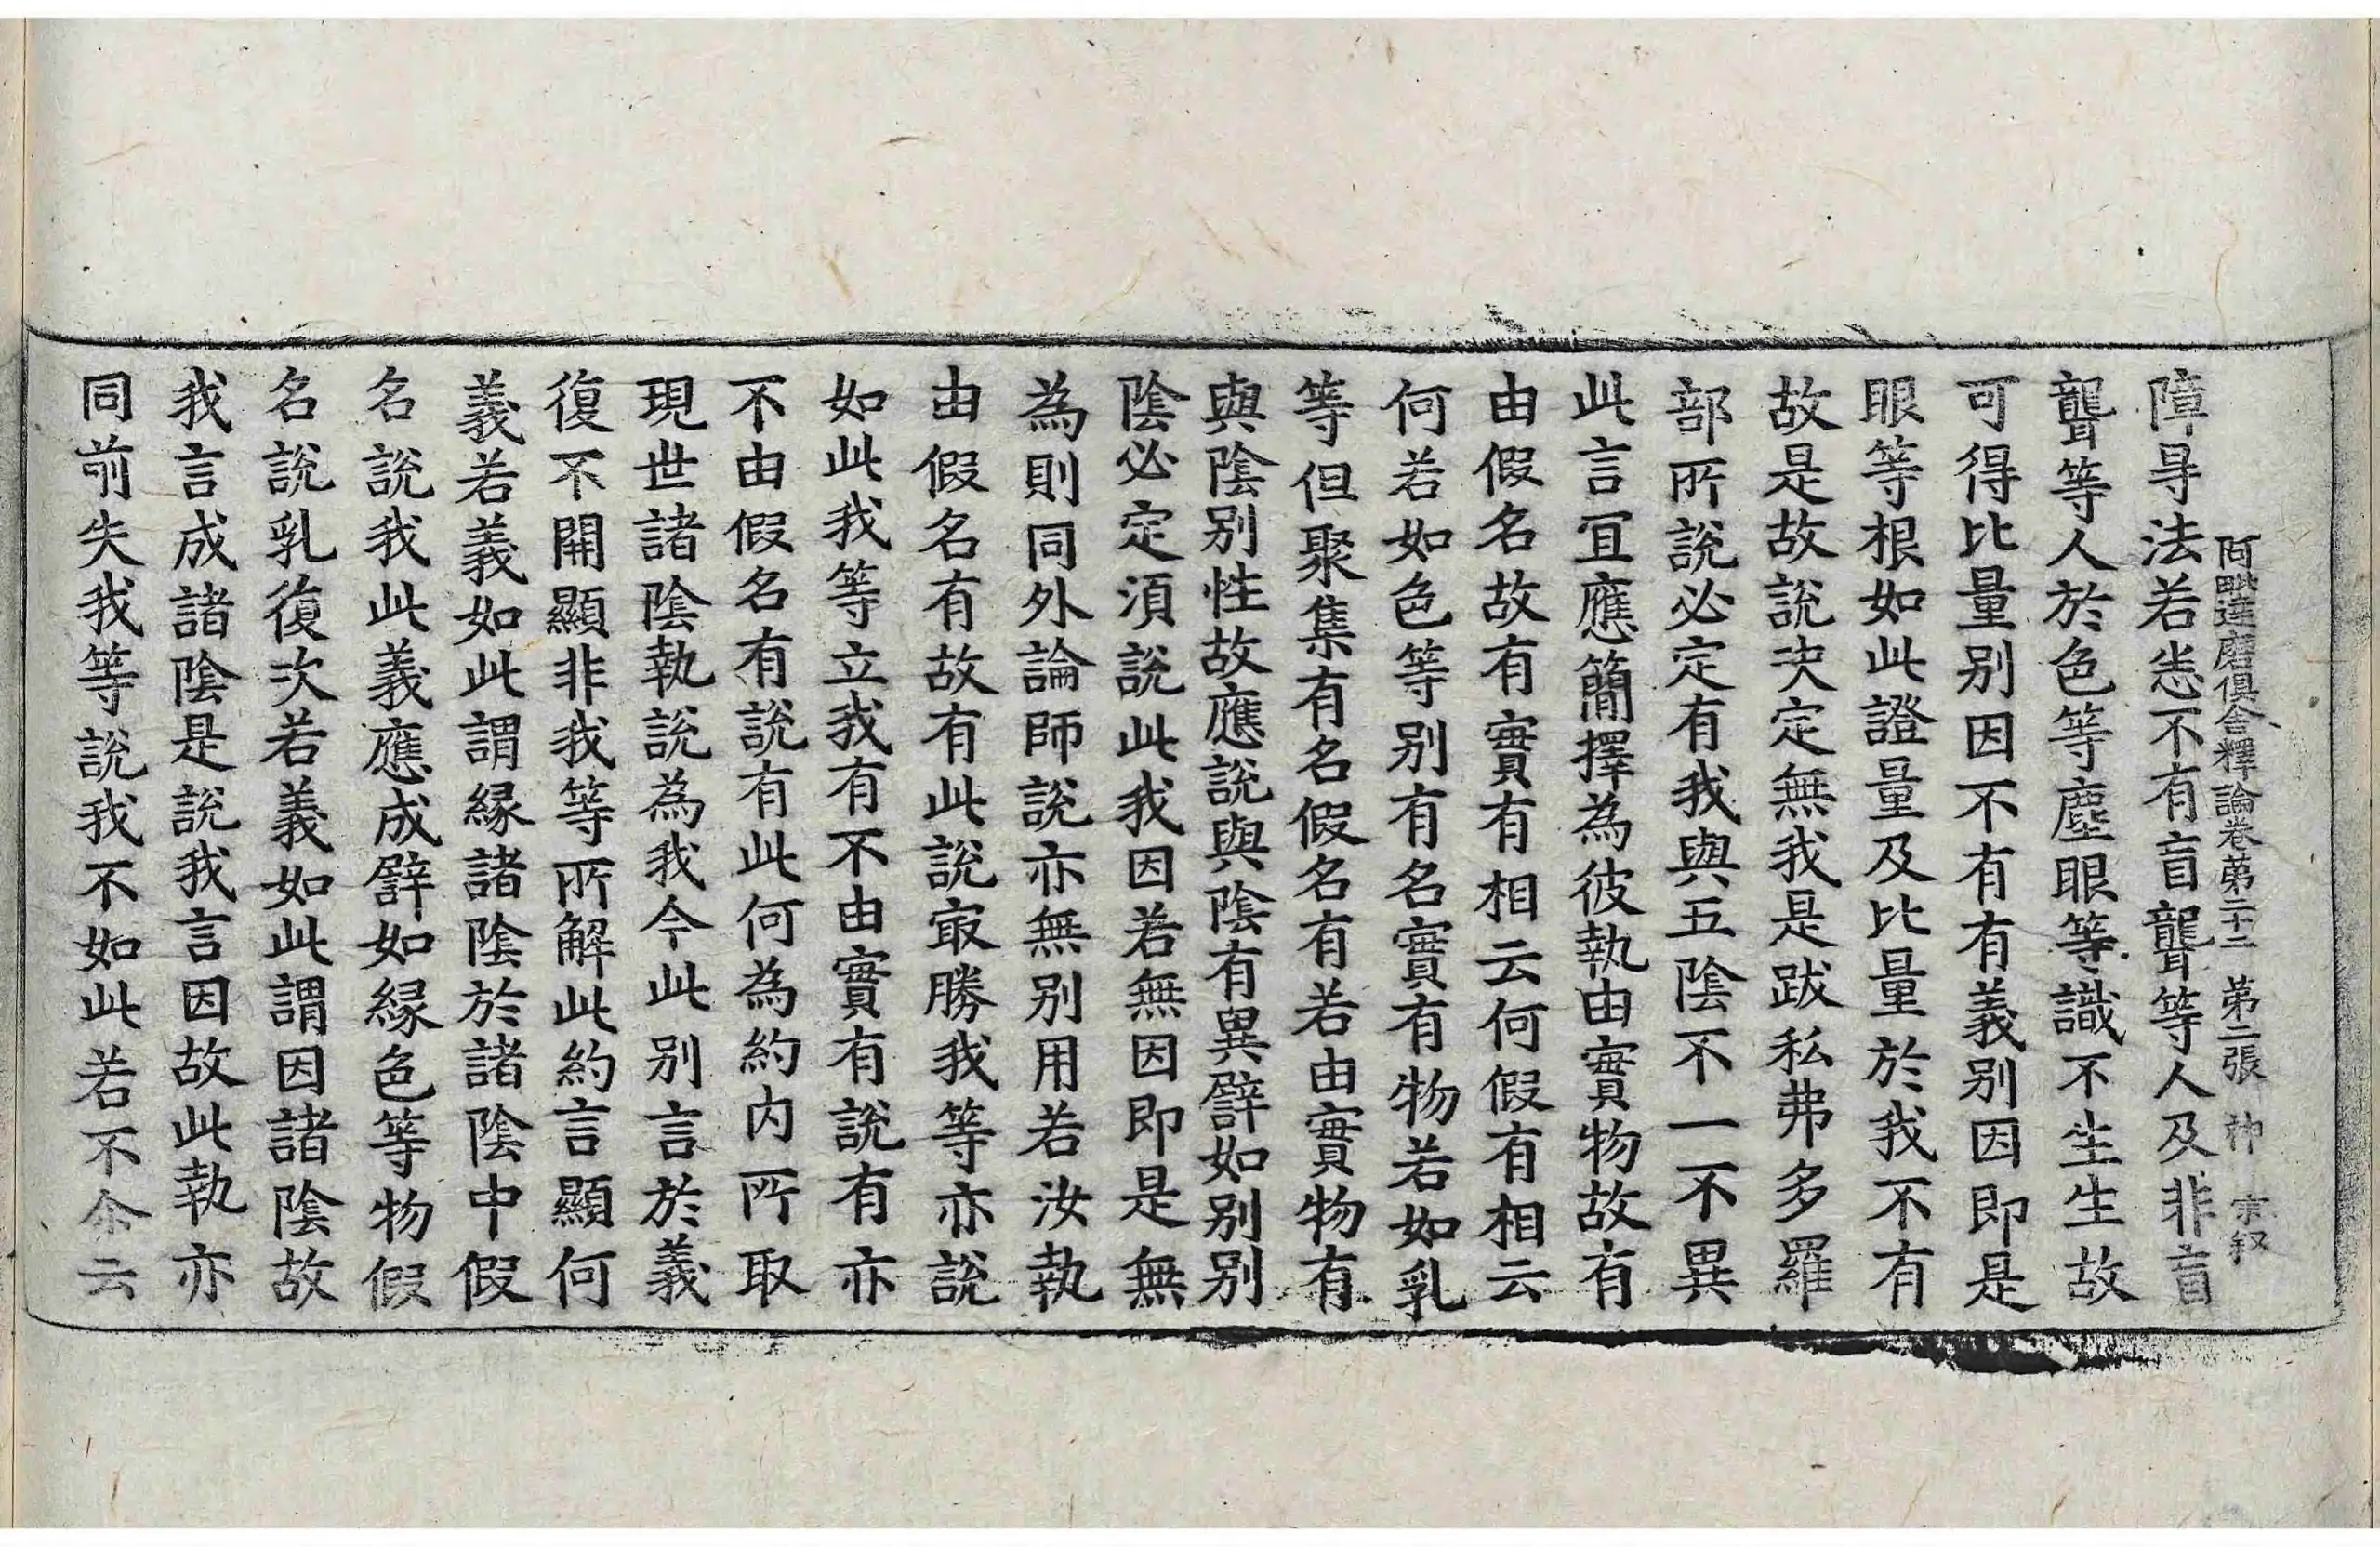 阿毗達磨俱舍釋論卷第二十二 第二張 神 宗叙
障㝵法若恙不有盲聾等人及非盲
聾等人於色等塵眼等識不生生故
可得比量別因不有有義別因即是
眼等根如此證量及比量於我不有
故是故說决定無我是跋私弗多羅
部所說必定有我與五陰不一不異
此言冝應簡擇為彼執由實物故有
由假名故有實有相云何假有相云
何若如色等別有名實有物若如乳
等但聚集有名假名有若由實物有
與陰別性故應說與陰有異譬如別別
陰必定湏說此我因若無因即是無
為則同外論師說亦無別用若汝執
由假名有故有此說㝡勝我等亦說
如此我等立我有不由實有說有亦
不由假名有說有此何為約內所取
現世諸陰執說為我今此別言於義
復不開顯非我等所解此約言顯何
義若義如此謂緣諸陰於諸陰中假
名說我此義應成譬如緣色等物假
名說乳復次若義如此謂因諸陰故
我言成諸陰是說我言因故此執亦
同前失我等說我不如此若不尒云